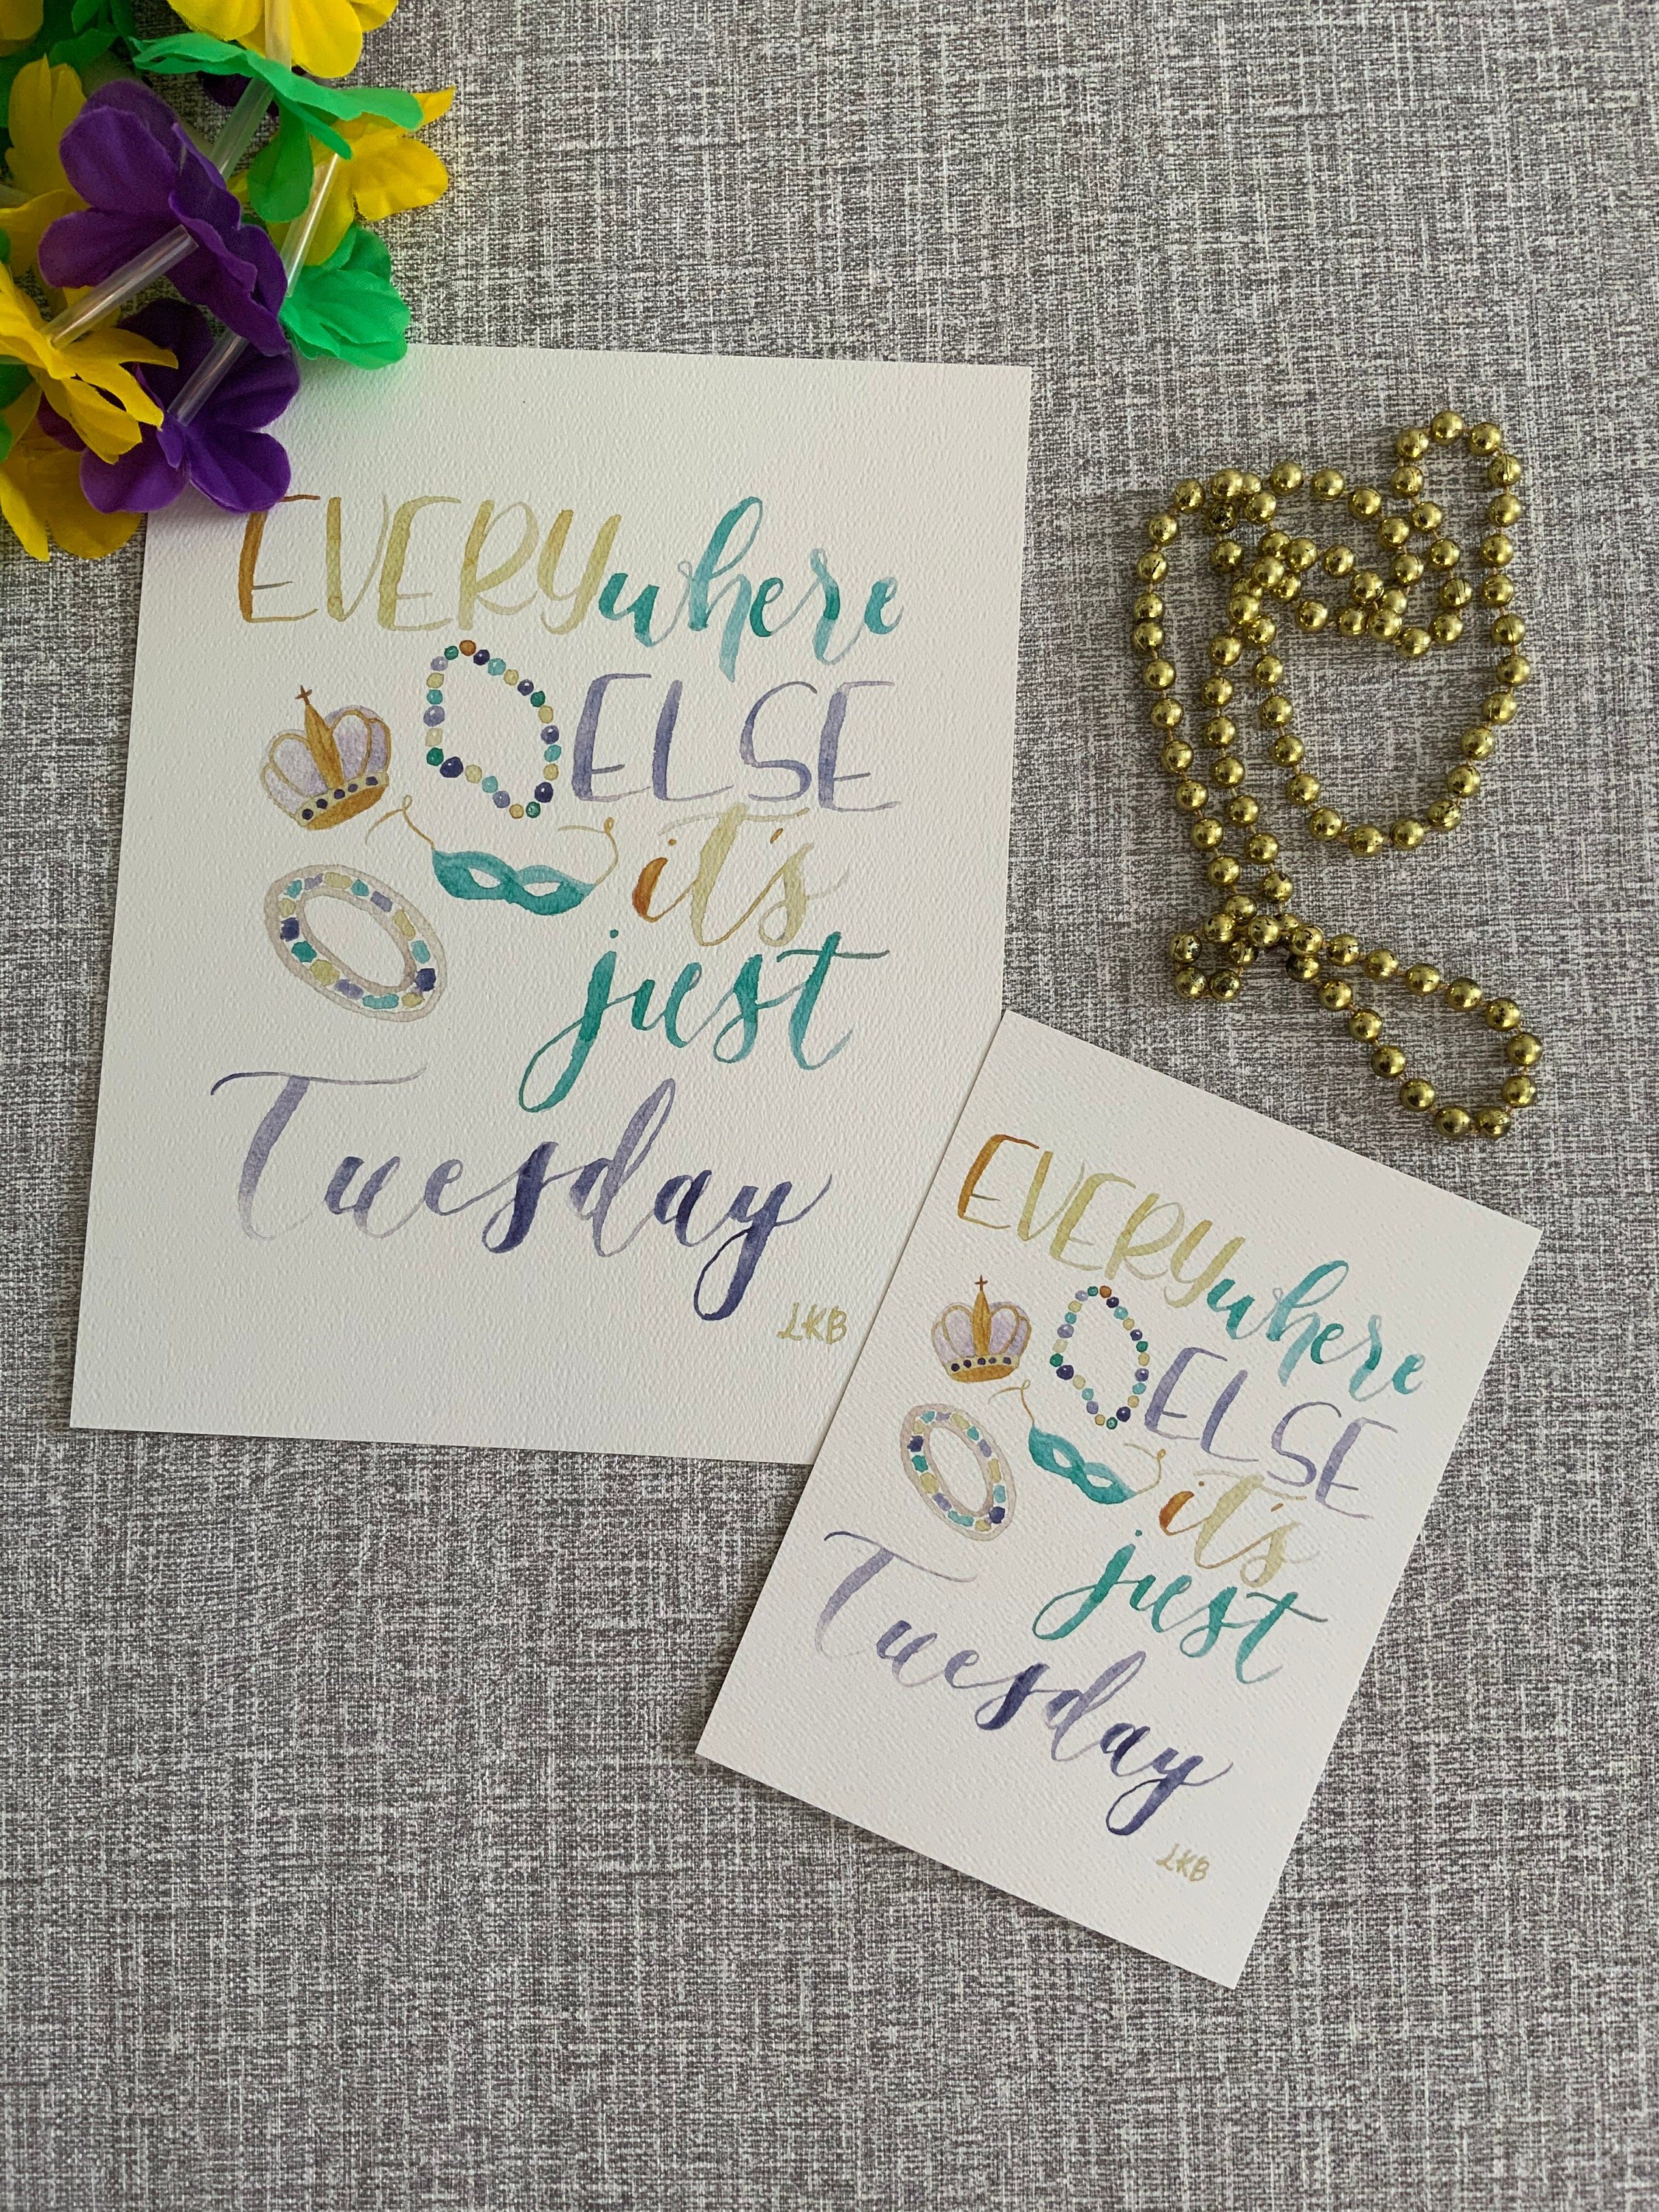 EVERYwhere
ELSE
it's
just
Tuesday
LKB
EVERYwhere
ELSE
it's
just
Tuesday
LKB